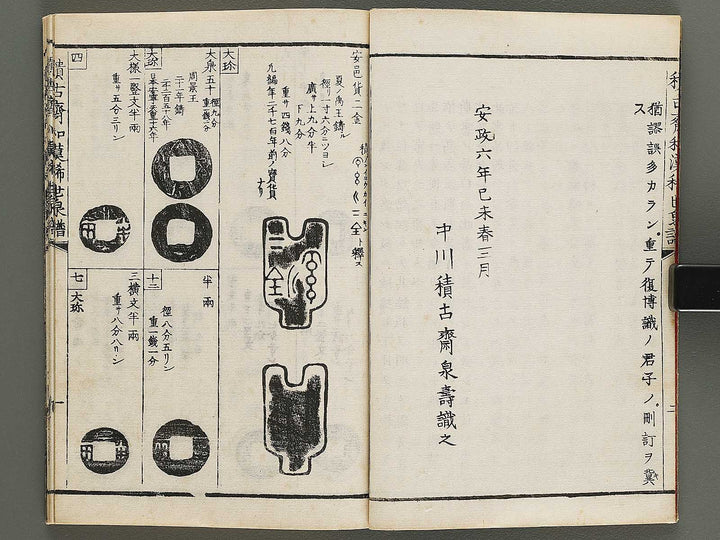 猶謬誤多カラン重テ復博識ノ君子ノ刪訂ヲ冀
ス
安政六年己未春三月
中川積古齋泉壽識之
安邑貨二金
夏ノ禹王鋳ル
徑リ一寸六分三ツヨシ
廣サ上九分半
下九分
重サ四錢八分
凡編年二千七百年前ノ寳貨
ナリ
大珎
大泉五十
徑九分
重錢二分
周景王
二十一年鋳
大珎
大様一竪文半兩
重サ五分三リン
四
半兩
十二
徑八分五リン
重一錢一分
三橫文半兩
重サ八分八リン
七
大珎
積古齋和漢稀世泉譜